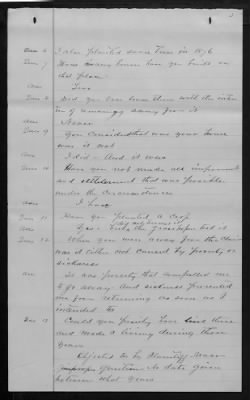 Ans 6 I also planted some Trees in 1876
Ques 7 How many houses have you built on
that place
Ans Two
Ques 8 Did you ever leave there with the inten
of remaining away from it
Ans Never
Ques 9 You considered that was your home
was it not
Ans I did - And it was
Ques 10 Have you not made all improvement
and settlement that was possible
under the circumstances
Ans I have
Ques 11 Have you planted a crop
Ans Yes - Twice the Grasshoppers eat it
Ques 12 When you were away from the claim
was it either not caused by poverty or
sickness
Ans It was poverty that compelled me
to go away. And sickness prevented
me from returning as soon as I
intended to
Ques 13 Could you possibly have lived there
and made a living during those
years
Objected to by Plaintiff
question. No date given
between what years